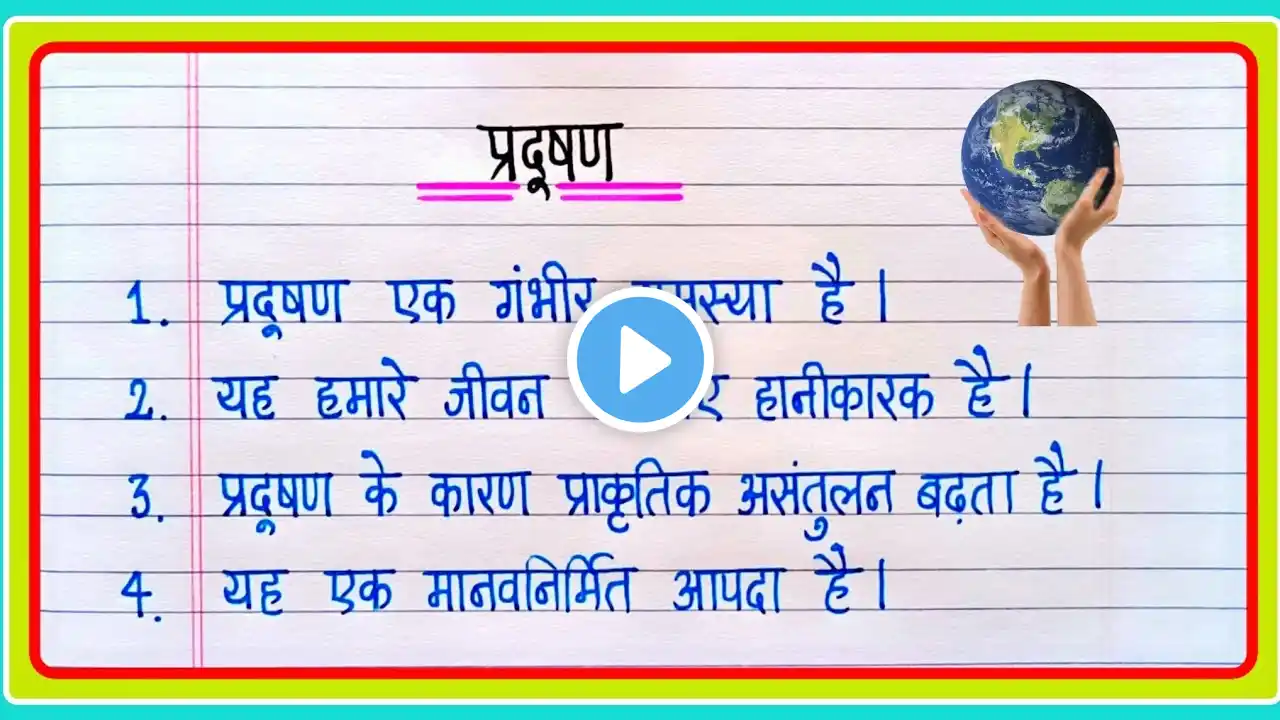 प्रदूषण
1. प्रदूषण एक गंभीर समस्या है।
2. यह हमारे जीवन हानीकारक है।
3. प्रदूषण के कारण प्राकृतिक असंतुलन बढ़ता है।
4. यह एक मानवनिर्मित आपदा है।